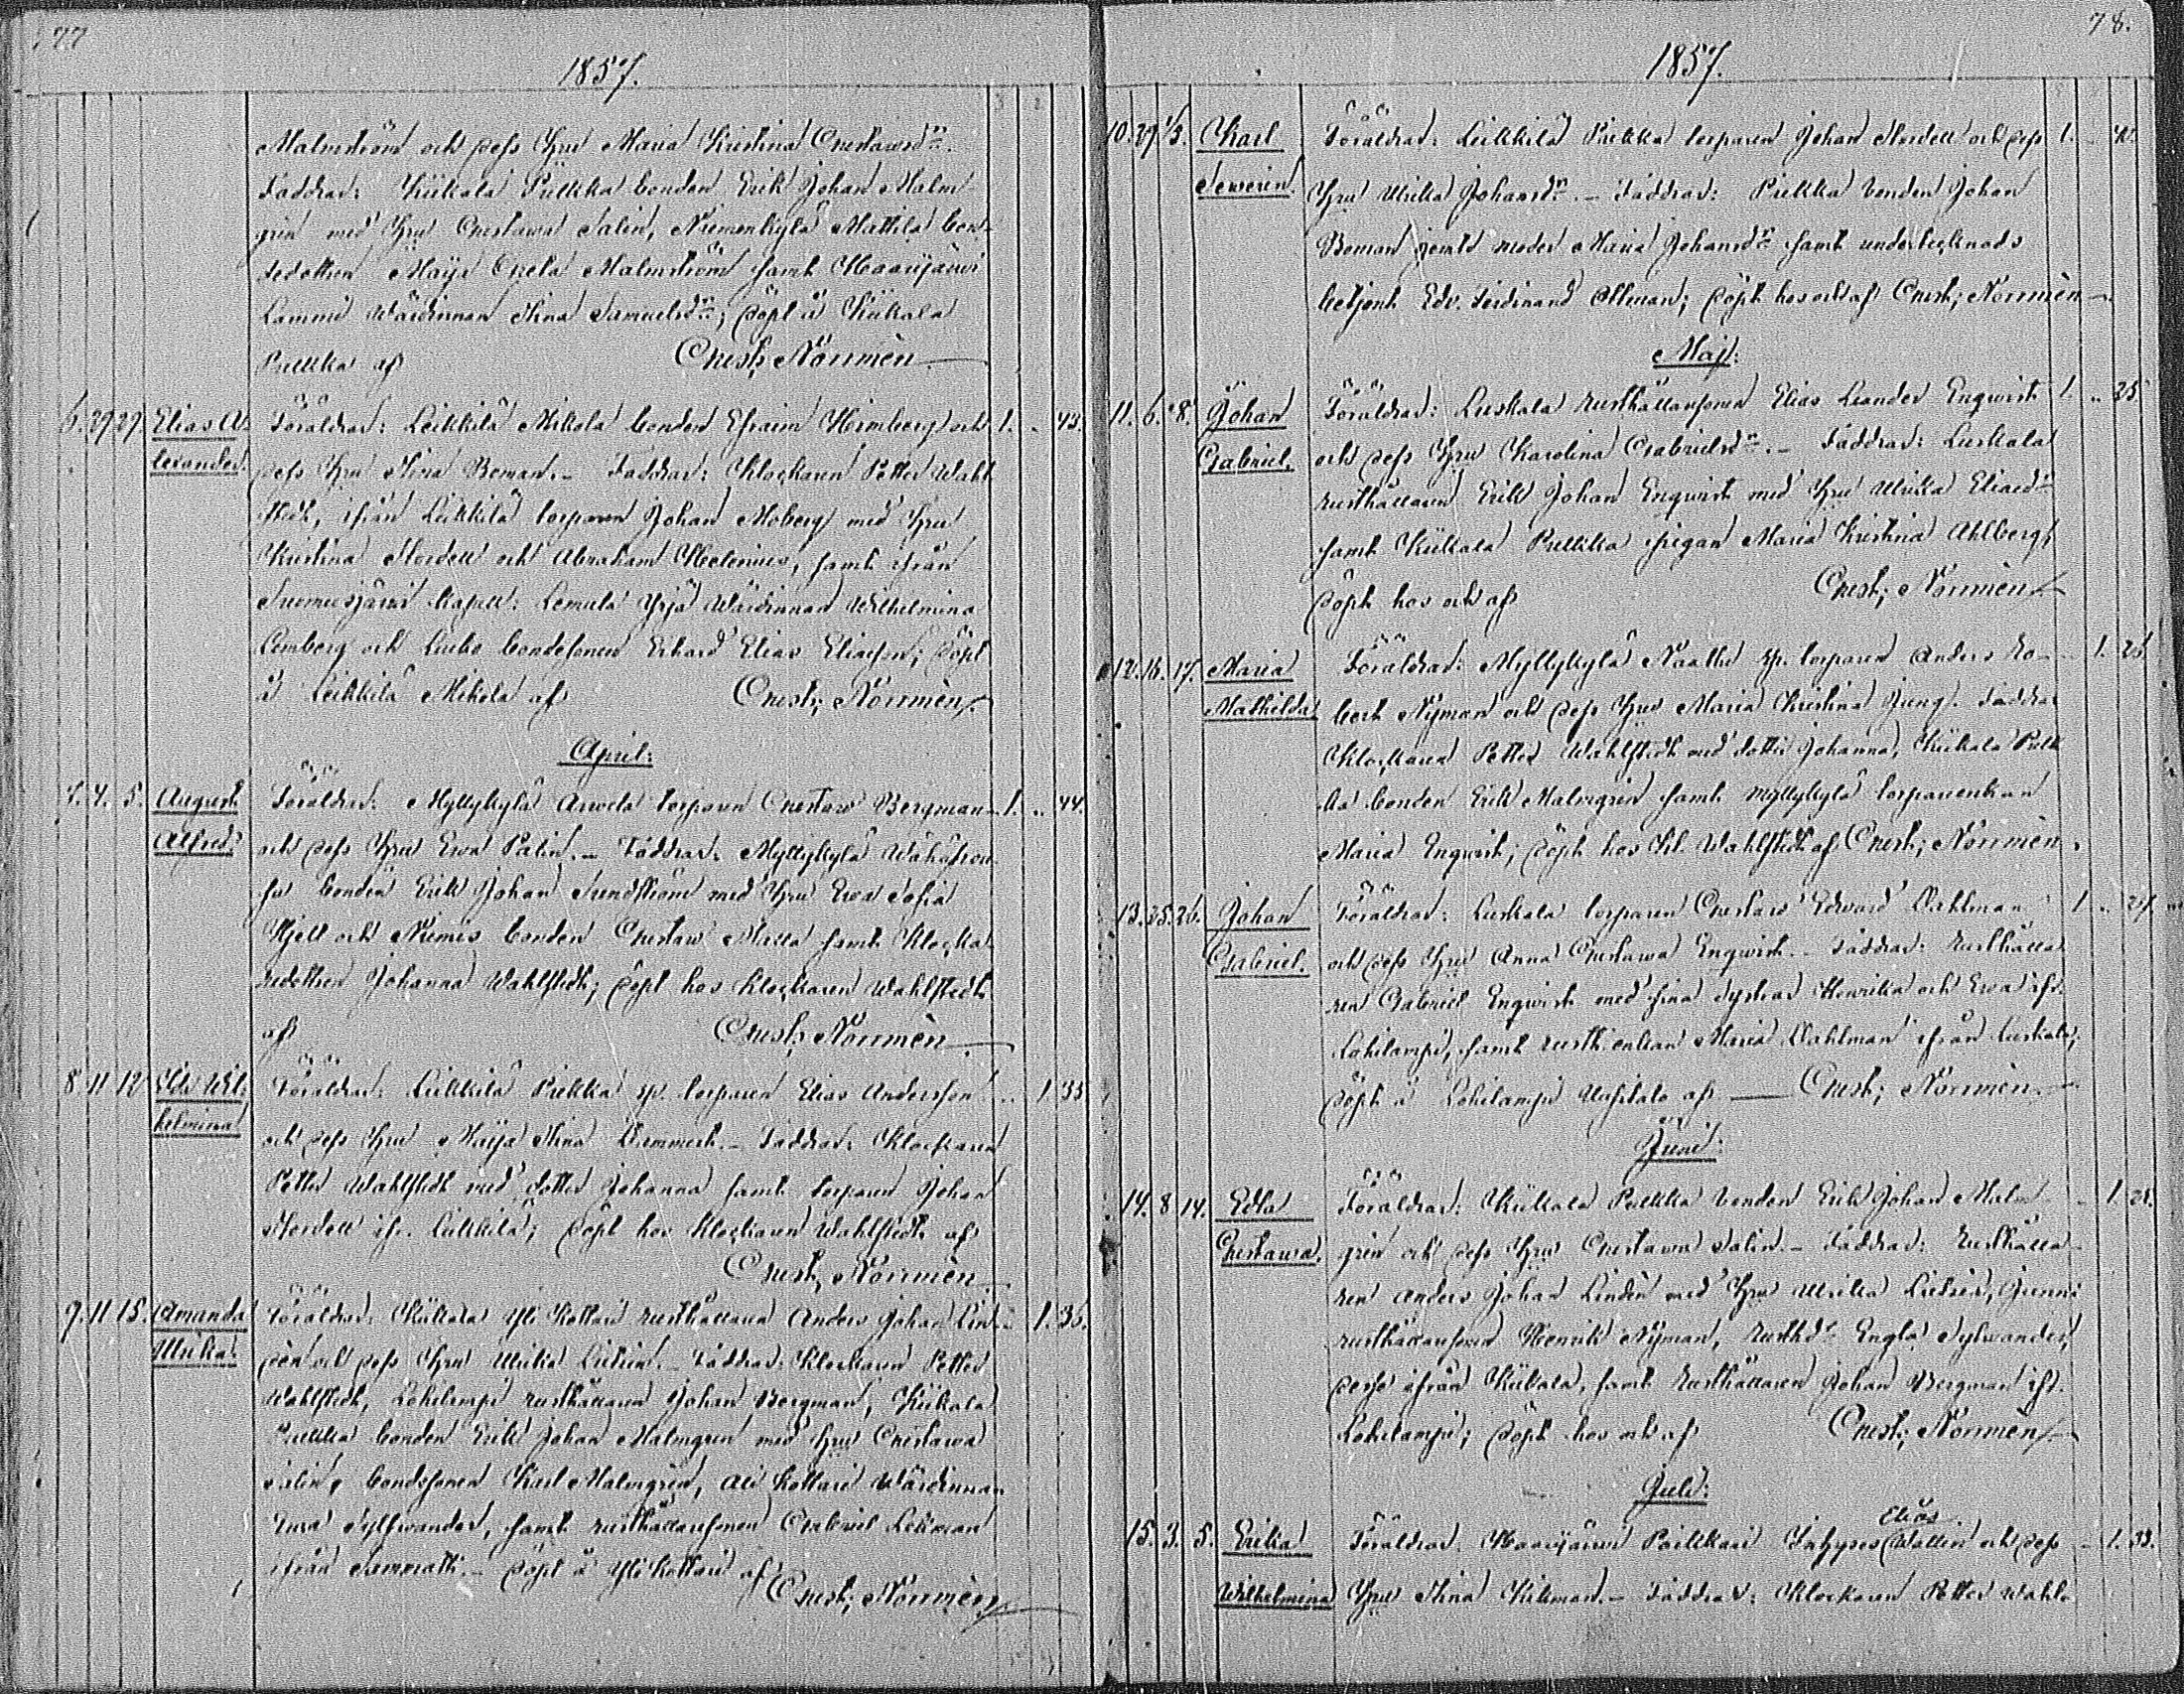 77
1857.
Malmström och dess Hru Maria Kristina Gustawsdr.
Faddrar: Kiikala Pullkka bonden Erik Johan Malm
grén med Hru Gustawa Salin, Niemenkylä Mattila bon-
dedottren Maija Greta Malmström samt Haarijärwi
Lammi Wärdinnan Stina Samuelsdr; döpt å Kiikala
Pullkka af Gust; Norrmén
6. 29 29 Elias A- Föräldrar: Leikkilä Mikola bonden Efraim Heimberg och 1. .. 43.
lexander. dess Hru Stina Boman. – Faddrar: Klockaren Petter Wahl-
stedt, ifrån Leikkilä torparen Johan Moberg med Hru
Kristina Nordell och Abraham Helenius, samt ifrån
Suomusjärwi Kapell: Lemula Yrjä Wärdinnan Wilhelmina
Lemberg och Laiho bondesonen Erhard Elias Eliasson; döpt
å Leikkilä Mikola af Gust; Norrmén
April:
7. 4. 5. August Föräldrar: Myllykylä Arwela torparen Gustaw Bergman 1. .. 44.
Alfred. och dess Hru Ewa Palin. – Faddrar: Myllykylä
bonden Erik Johan Sundström med Hru Ewa Sofia
Kjell och Niemis bonden Gustaw Matts samt Klocka-
redottren Johanna Wahlstedt; döpt hos Klockaren Wahlstedt
af Gust; Norrmén
8. 11 12 Wil- Föräldrar: Leikkilä Pukkka sp. torparen Elias Andersson .. 1. 35
helmina och dess Hru Maija Stina – Faddrar: Klockaren
Petter Wahlstedt med dotter Johanna samt torparen Johan
Nordell ifr. Leikkilä; döpt hos Klockaren Wahlstedt af
Gust; Norrmén
9. 11 15. Amanda Föräldrar: Kiikala Yli Kottari rusthållaren Anders Johan Lin- .. 1. 36.
Ulrika. dén och dess Hru Ulrika – Faddrar: Klockaren Petter
Wahlstedt, Lohilampi rusthållaren Johan Bergman, Kiikala
Pullkka bonden Erik Johan Malmgren med Hru Gustawa
Salin, bondesonen Karl Malmgrén, Ali Kottari Wärdinnan
Sylfwander, samt rusthållaresonen Gabriel Lehman
ifrån – döpt å Yli Kottari af
Gust; Norrmén
78.
1857.
10. 29 1/5. Karl Föräldrar: Leikkilä Pukkka torparen Johan Nordell och dess 1. ..
Sewerin. Hru Ulrika Johansdr. – Faddrar: Pullkka bonden Johan
Boman jemte moder Maria Johansdr samt undertecknads
betjent Edv. Ferdinand Allman; döpt hos och af Gust; Norrmén
Maj:
11. 6. 8. Johan Föräldrar: Luskala rusthållaresonen Elias Leander Engwist 1. .. 25
Gabriel. och dess Hru Karolina Gabrielsdr. – Faddrar: Luskala
rusthållaren Erik Johan Engwist med Hru Ulrika Eliaedr
samt Kiikala Pullkka pigan Maria Kristina Ahlberg;
döpt hos och af Gust; Norrmén
12. 16. 17. Maria Föräldrar: Myllykylä sp. torparen Anders Ro- .. 1. 26
Mathilda bert Nyman och dess Hru Maria Kristina Ljung. Faddrar
Klockaren Petter Wahlstedt med dotter Johanna, Kiikala Pullk-
ka bonden Erik Malmgrén samt Myllykylä torpareenkan
Maria Engwist; döpt hos Kl. Wahlstedt af Gust; Norrmén.
13. 25. 26. Johan Föräldrar: Luskala torparen Gustaw Edward Dahlman 1. .. 27.
Gabriel. och dess Hru Anna Gustawa Engwist. – Faddrar: Rusthålla-
ren Gabriel Engwist med sina systrar Henrika och Ewa ifr.
Lohilampi, samt rusth.enkan Maria Dahlman ifrån Luskala;
döpt å Lohilampi Uusitalo af — Gust; Norrmén.
Juni:
14. 8 14. Edla Föräldrar: Kiikala Pullkka bonden Erik Johan Malm- .. 1. 28.
Gustawa. grén och dess Hru Gustawa Salin. – Faddrar: Rusthålla-
ren Anders Johan Lindén med Hru Ulrika
rusthållaresonen Henrik Nyman, rusthdr Engla Sylwander,
desse ifrån Kiikala, samt Rusthållaren Johan Bergman ifr.
Lohilampi; döpt hos och af Gust; Norrmén
Juli:
Elias
15. 3. 5. Föräldrar: Haarijärwi Inhyses Wallin och dess .. 1. 33.
Wilhelmina Hru Stina – Faddrar: Klockaren Petter Wahl-